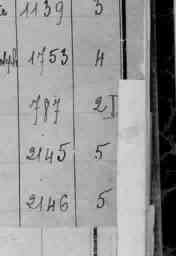 1139 3
1753 4
787 2
2145 5
2146 5